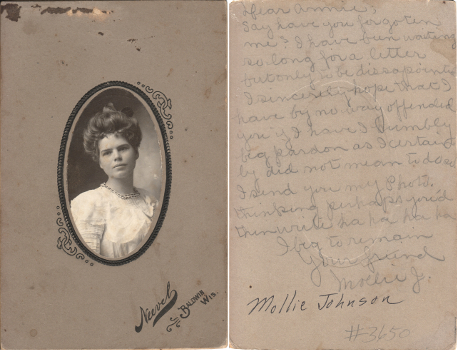 Neevel
Baldwin,
Wis.
Dear Annie;
Say have you forgotten
me? I have been waiting
so long for a letter
but only to be dissapointed
I sincerely hope that I
have by no way offended
you if I have I humbly
beg pardon as I certain
ly did not mean to do so
I send you my Photo.
thinking perhaps you'd
then write ha ha ha ha
I beg to remain
Your friend
Mollie J.
Mollie Johnson
#3650